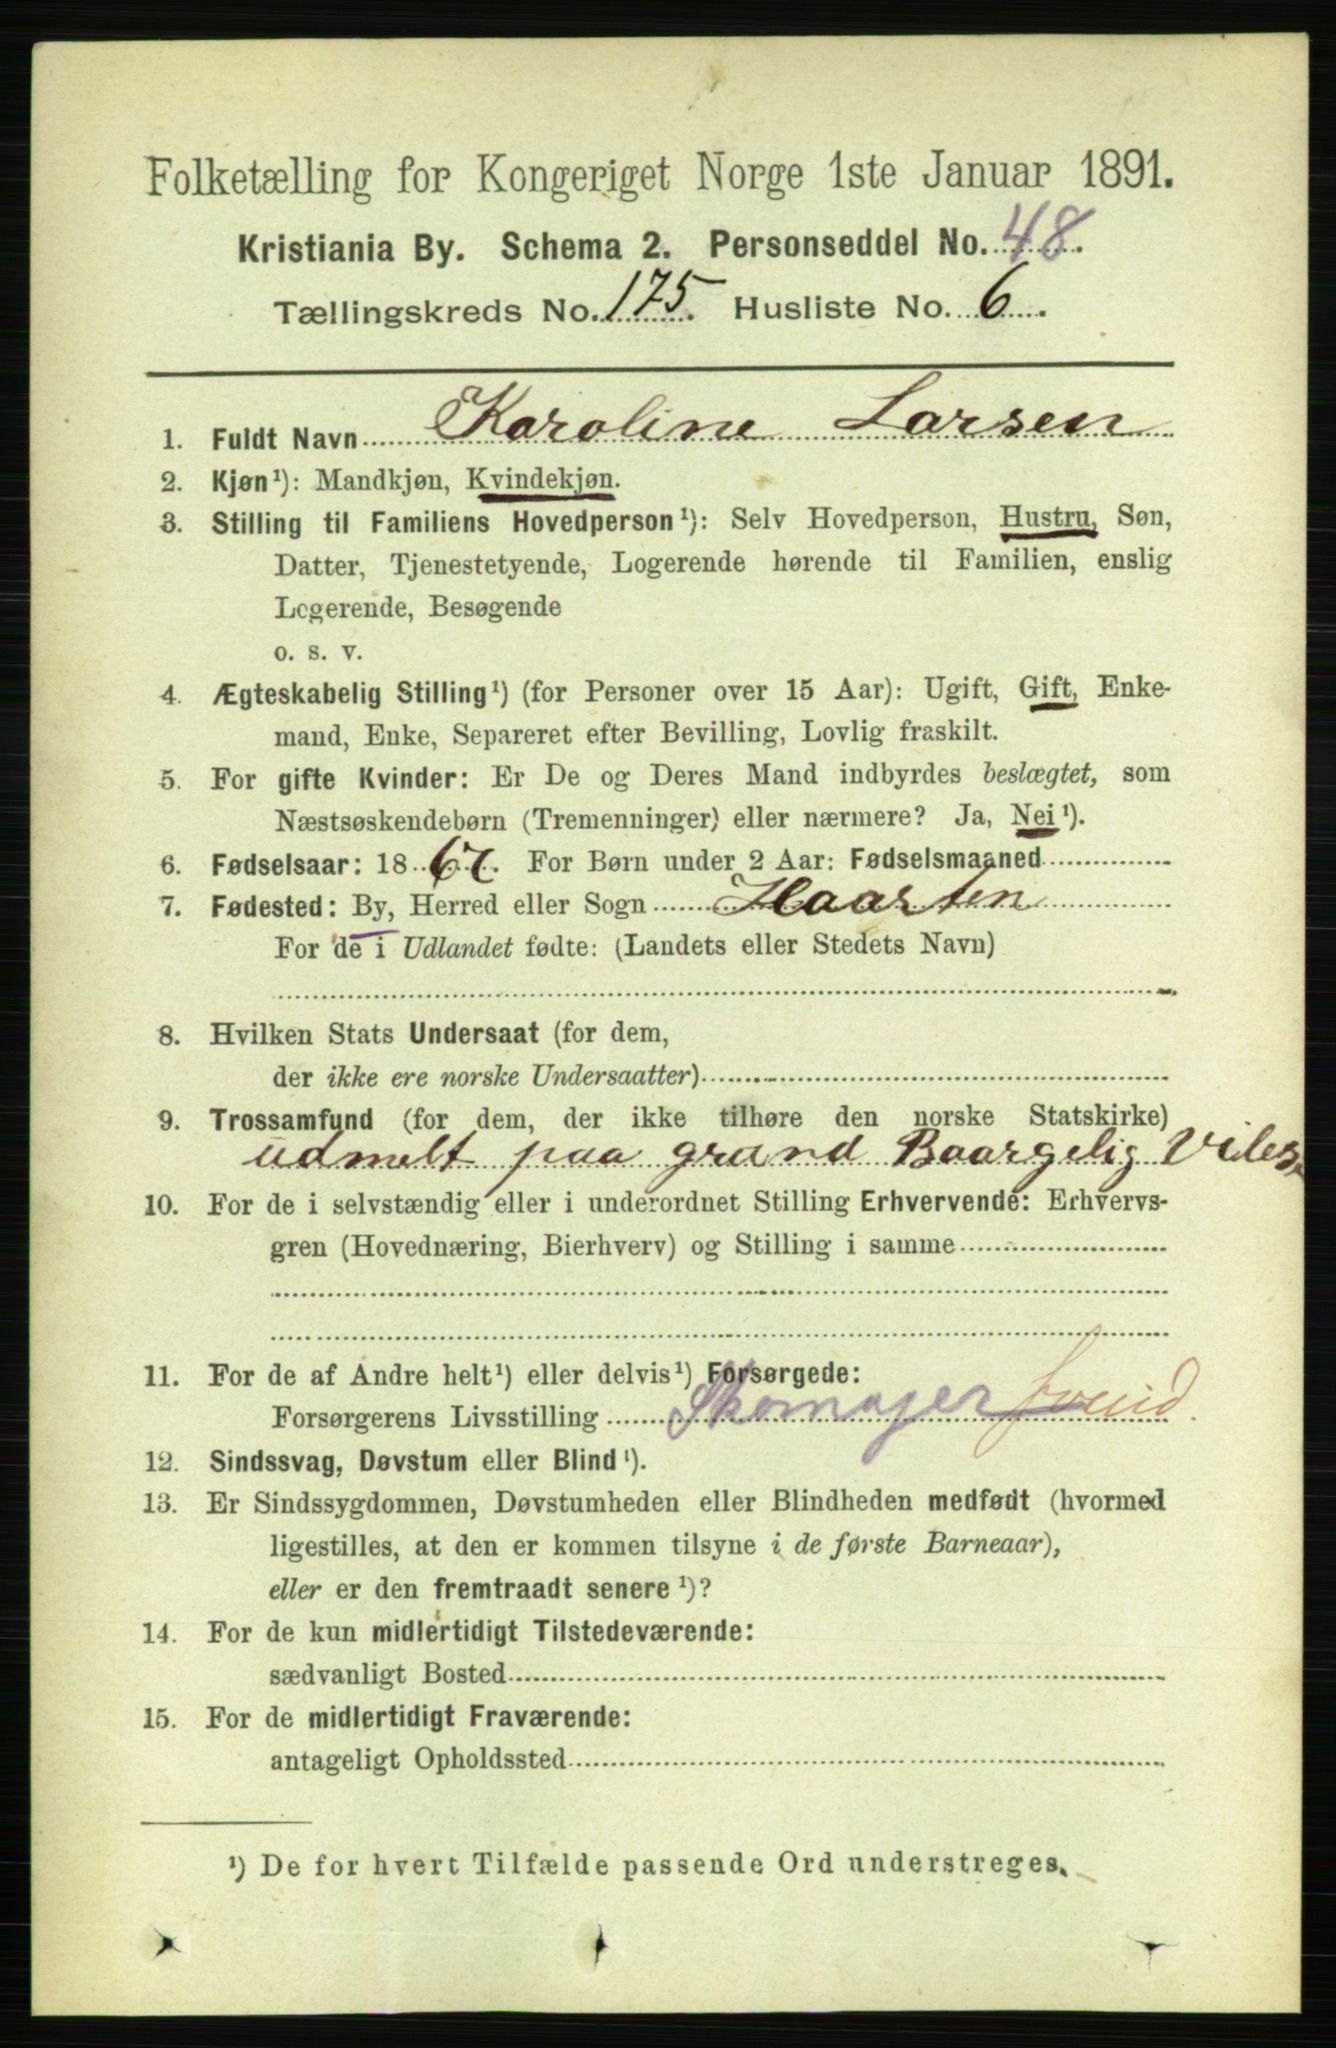 Folketælling for Kongeriget Norge 1ste Januar 1891.
Kristiania By. Schema 2. Personseddel No. 48.
Tællingskreds No. 175. Husliste No. 6.
1. Fuldt Navn Karoline Larsen
2. Kjøn¹): Mandkjøn, Kvindekjøn.
3. Stilling til Familiens Hovedperson¹): Selv Hovedperson, Hustru, Søn,
Datter, Tjenestetyende, Logerende hørende til Familien, enslig
Logerende, Besøgende
o. s. v.
4. Ægteskabelig Stilling¹) (for Personer over 15 Aar): Ugift, Gift, Enke-
mand, Enke, Separeret efter Bevilling, Lovlig fraskilt.
5. For gifte Kvinder: Er De og Deres Mand indbyrdes beslægtet, som
Næstsøskendebørn (Tremenninger) eller nærmere? Ja, Nei¹).
6. Fødselsaar: 1867. For Børn under 2 Aar: Fødselsmaaned
7. Fødested: By, Herred eller Sogn Haarsten
For de i Udlandet fødte: (Landets eller Stedets Navn)
8. Hvilken Stats Undersaat (for dem,
der ikke ere norske Undersaatter)
9. Trossamfund (for dem, der ikke tilhøre den norske Statskirke)
udmelt paa grand Baargelig Viles
10. For de i selvstændig eller i underordnet Stilling Erhvervende: Erhvervs-
gren (Hovednæring, Bierhverv) og Stilling i samme
11. For de af Andre helt¹) eller delvis¹) Forsørgede:
Forsørgerens Livsstilling Skomager
12. Sindssvag, Døvstum eller Blind¹).
13. Er Sindssygdommen, Døvstumheden eller Blindheden medfødt (hvormed
ligestilles, at den er kommen tilsyne i de første Barneaar),
eller er den fremtraadt senere¹)?
14. For de kun midlertidigt Tilstedeværende:
sædvanligt Bosted
15. For de midlertidigt Fraværende:
antageligt Opholdssted
¹) De for hvert Tilfælde passende Ord understreges.